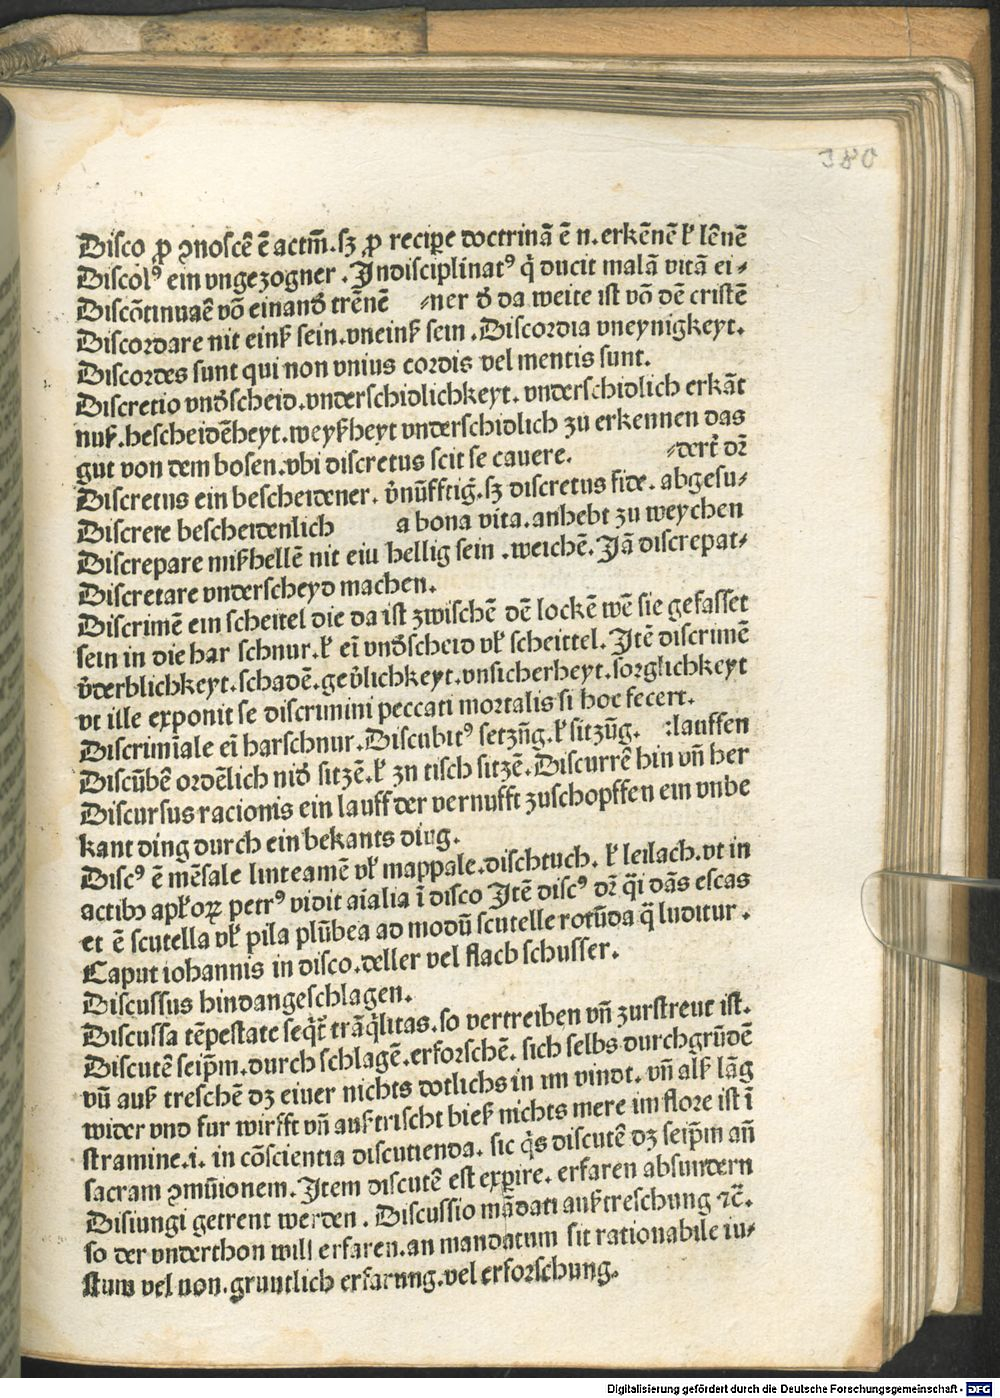 380
Disco ꝓ ꝯnoscē ē actm̄.sꝫ ꝓ recipe doctrinā ē n.erkēnē ł lēnē
Discolꝰ ein vngezogner.Indisciplinatꝰ q̇ ducit malā vitā ei⸗
Discōtinuaē vō einand̄ trēnē ⸗ner d̄ da weite ist vō dē cristē
Discordare nit einß sein.vneinß sein.Discordia vneynigkeyt.
Discordes sunt qui non vnius cordis vel mentis sunt.
Discretio vnd̄scheid.vnderschidlichkeyt.vnderschidlich erkāt
nuß.bescheidēheyt.weyßheyt vnderschidlich zu erkennen das
gut von dem bosen.vbi discretus scit se cauere. ⸗dert̄ dr̄
Discretus ein bescheidener.v̄nūfftiḡ.sꝫ discretus fide.abgesu⸗
Discrete bescheidenlich a bona vita.anhebt zu weychen
Discrepare mißhellē nit eiu hellig sein.weichē.Jā discrepat⸗
Discretare vnderscheyd machen.
Discrimē ein scheitel die da ist zwischē dē lockē wē sie gefasset
sein in die har schnur.ł eī vnd̄scheid vł scheittel.Itē discrimē
v̄derblichkeyt.schadē.gev̄lichkeyt.vnsicherheyt.sorglichkeyt
vt ille exponit se discrimini peccati mortalis si hoc fecert.
Discrimīale eī harschnur.Discubitꝰ setzūg.ł sitzūg. :lauffen
Discūbē ordēlich nid̄ sitzē.ł zn tisch sitzē.Discurrē hin vn̄ her
Discursus racionis ein lauff der vernufft zuschopffen ein vnbe
kant ding durch ein bekants diug.
Discꝰ ē mēsale linteamē vł mappale.dischtuch.ł leilach.vt in
actibꝫ apłoꝝ petrꝰ vidit aīalia ī disco Itē discꝰ dr̄ q̄i dās escas
et ē scutella vł pila plūbea ad modū scutelle rotūda q̄ luditur.
Caput iohannis in disco.deller vel flach schusser.
Discussus hindangeschlagen.
Discussa tēpestate seq̄t̄ trāq̄litas.so vertreiben vn̄ zurstreut ist.
Discutē seip̄m.durch schlagē.erforschē.sich selbs durchgrūdē
vn̄ auß treschē dꝫ einer nichts dotlichs in im vindt.vn̄ alß lāg
wider vnd fur wirfft vn̄ außtrischt bieß nichts mere im flore ist ī
stramine.i.in cōscientia discutienda.sic q̄s discutē dꝫ seip̄m an̄
sacram ꝯmūionem.Item discutē est expire.erfaren absundern
Disiungi getrent werden.Discussio mādati außtreschung ⁊c̄.
so der vnderthon will erfaren.an mandatum sit rationabile iu⸗
stum vel non.gruntlich erfarung.vel erforschung.
Digitalisierung gefördert durch die Deutsche Forschungsgemeinschaft - DFG